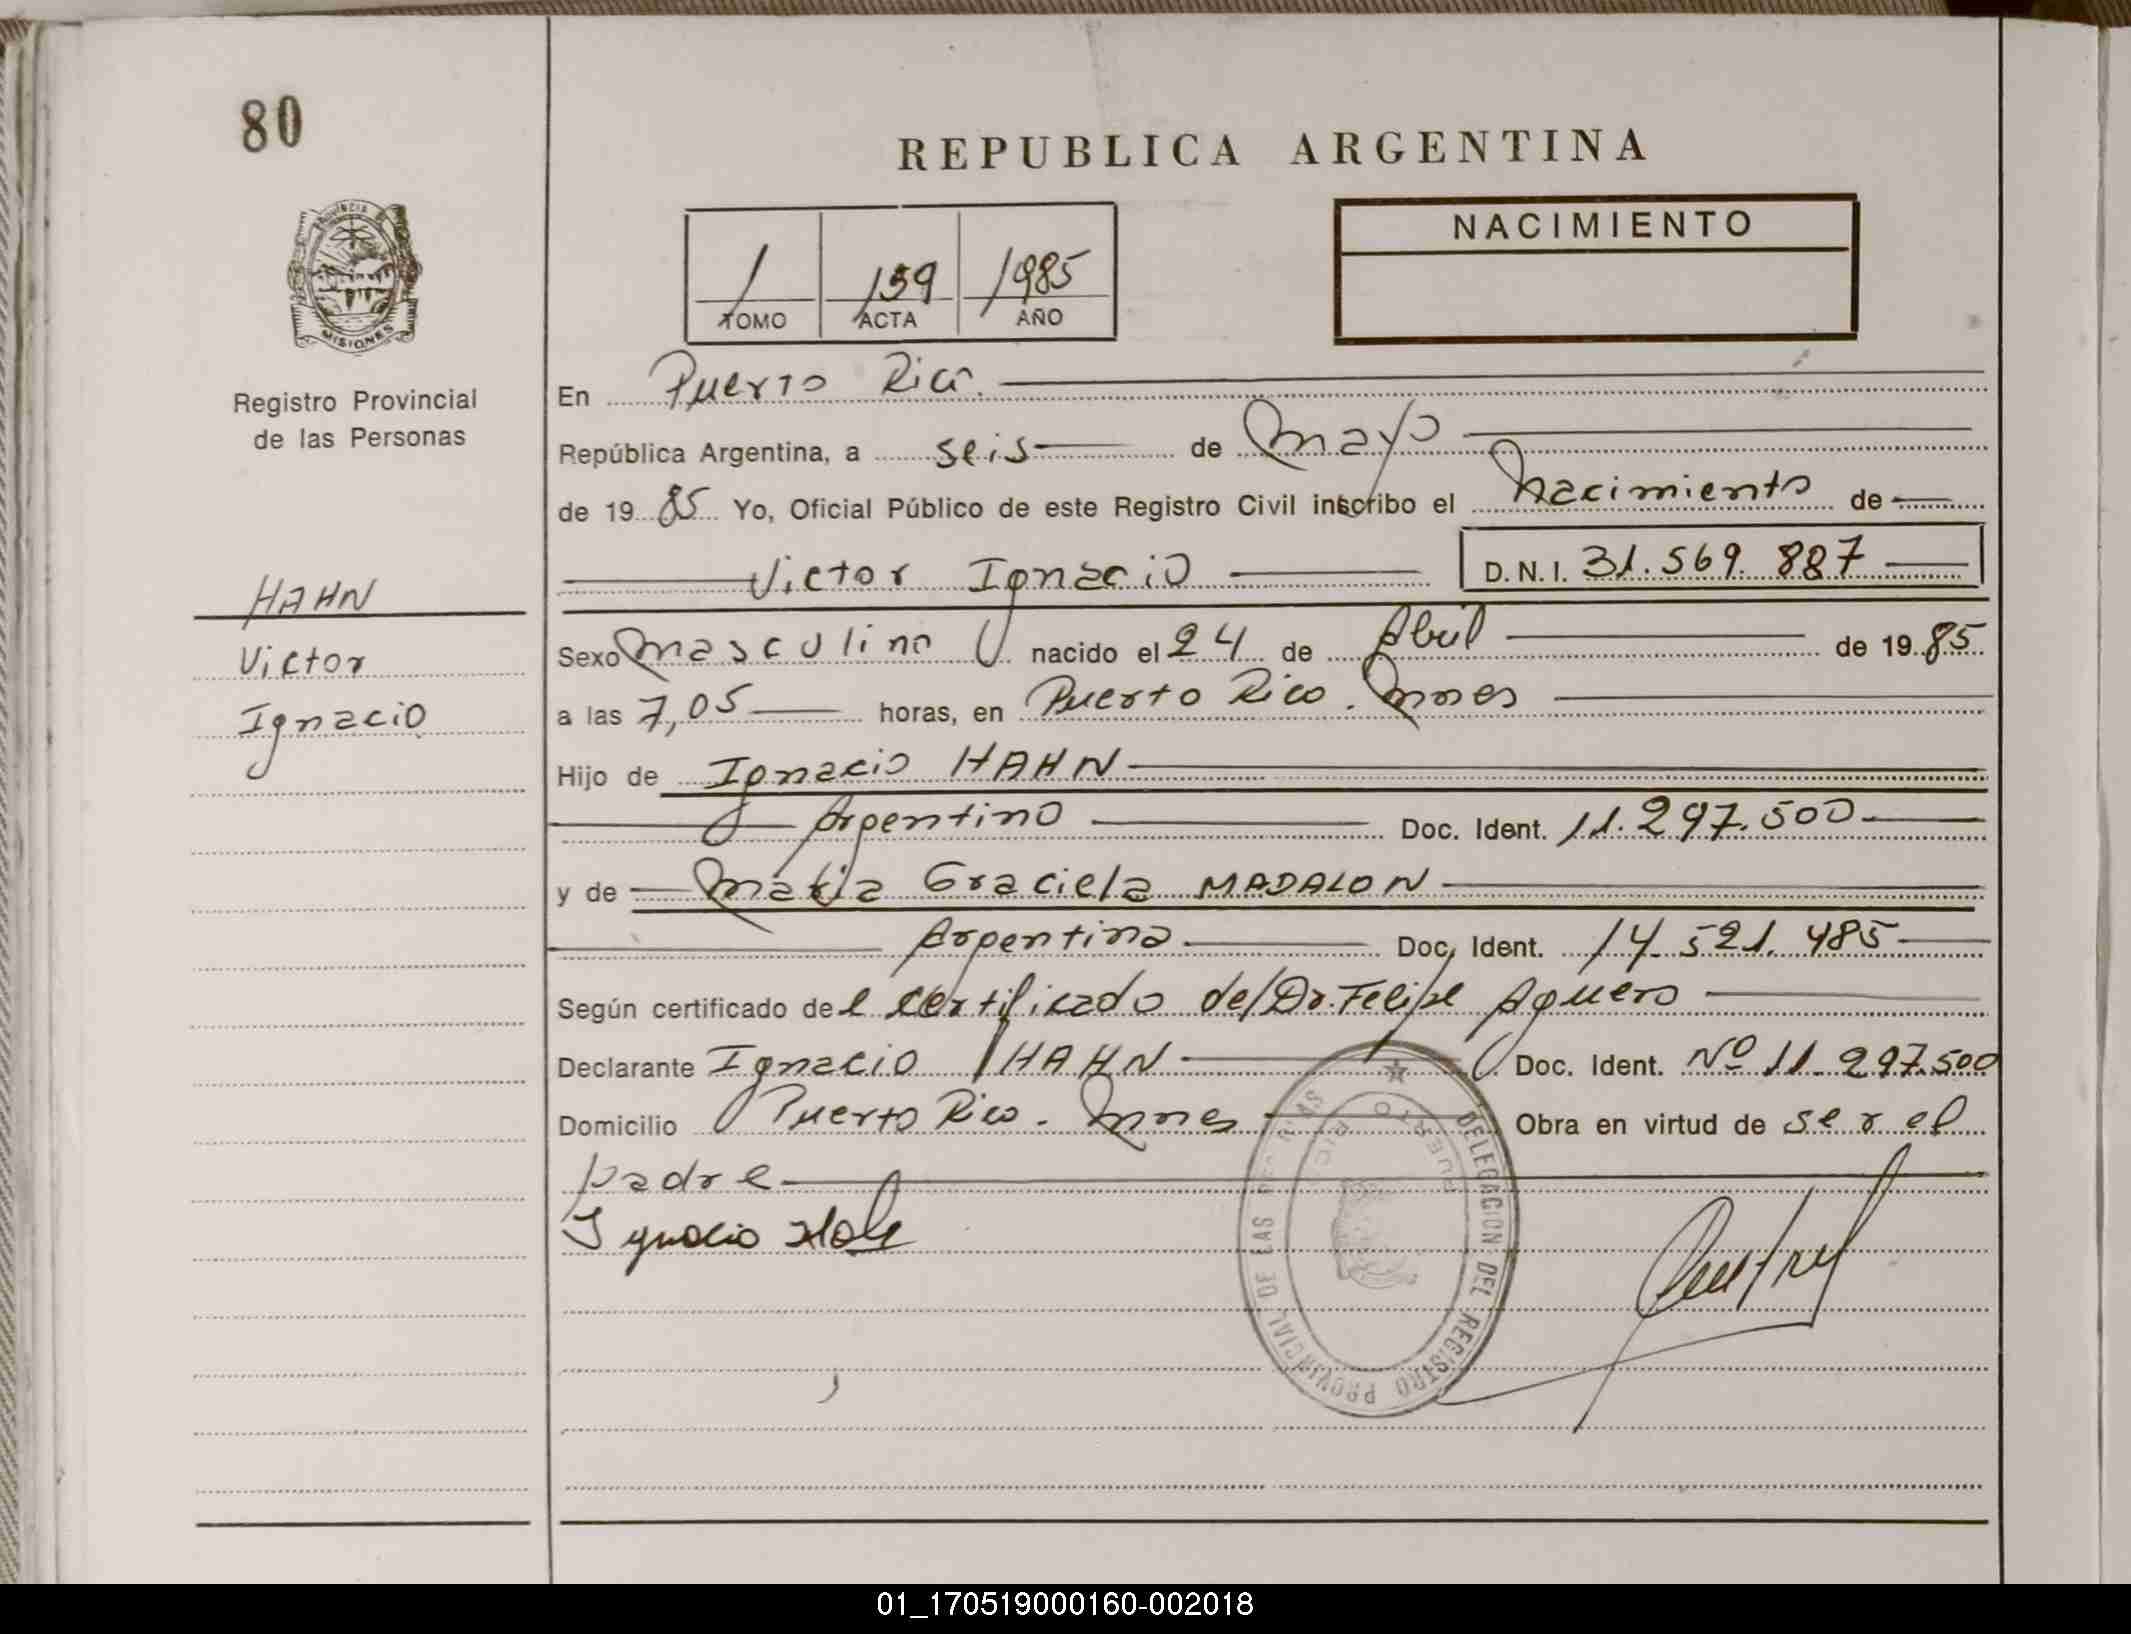 80
REPUBLICA ARGENTINA
NACIMIENTO
1 159 1985
TOMO ACTA AÑO
PROVINCIA DE
MISIONES
Registro Provincial
de las Personas
HAHN
Victor
Ignacio
En Puerto Rico.
República Argentina, a seis de Mayo
de 1985 Yo, Oficial Público de este Registro Civil inscribo el Nacimiento de
Victor Ignacio D.N.I. 31.569.887
Sexo Masculino nacido el 24 de Abril de 1985
a las 7,05 horas, en Puerto Rico. Mnes
Hijo de Ignacio HAHN
Argentino Doc. Ident. 11.297.500
y de María Graciela MADALON
Argentina Doc. Ident. 14.521.485
Según certificado del certificado del Dr. Felipe Aguero
Declarante Ignacio HAHN Doc. Ident. Nº 11.297.500
Domicilio Puerto Rico. Mnes Obra en virtud de ser el
padre
Ignacio Hahn
DELEGACION DEL REGISTRO PROVINCIAL DE LAS PERSONAS
PUERTO RICO
01_170519000160-002018